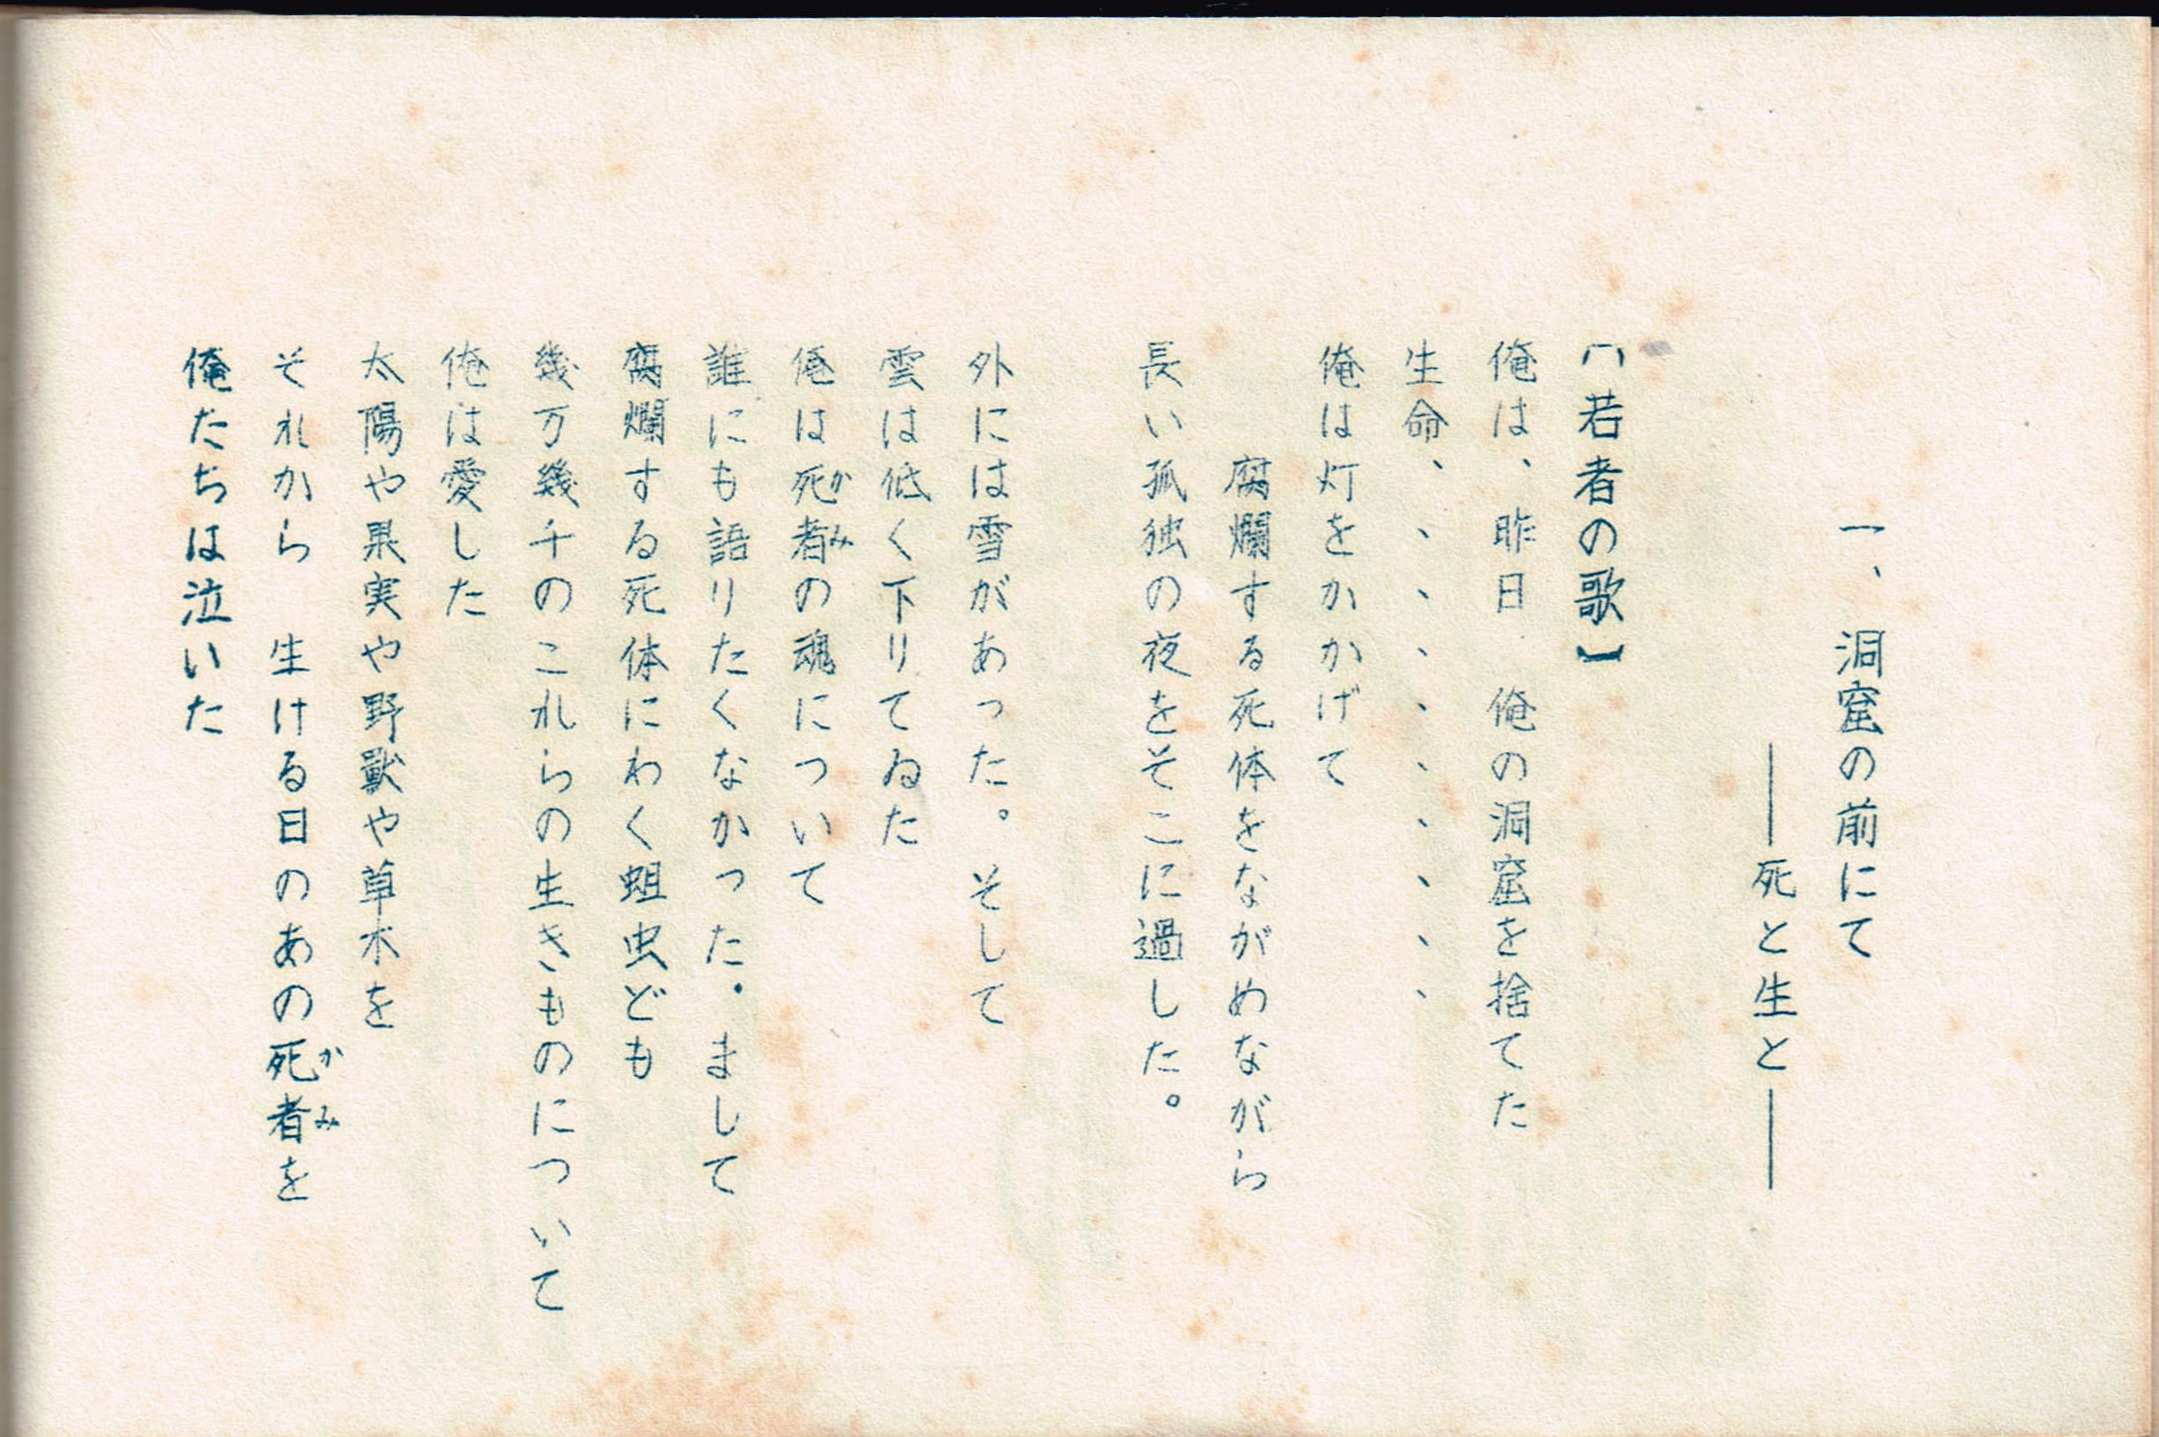 一、洞窟の前にて
――死と生と――
【若者の歌】
俺は、昨日　俺の洞窟を捨てた
生命、、、、、、、、、、
俺は灯をかかげて
腐爛する死体をながめながら
長い孤独の夜をそこに過した。
外には雪があった。そして
雲は低く下りてゐた
俺は死者の魂について
かみ
誰にも語りたくなかった。まして
腐爛する死体にわく蛆虫ども
幾万幾千のこれらの生きものについて
俺は愛した
太陽や果実や野獣や草木を
それから　生ける日のあの死者を
かみ
俺たちは泣いた